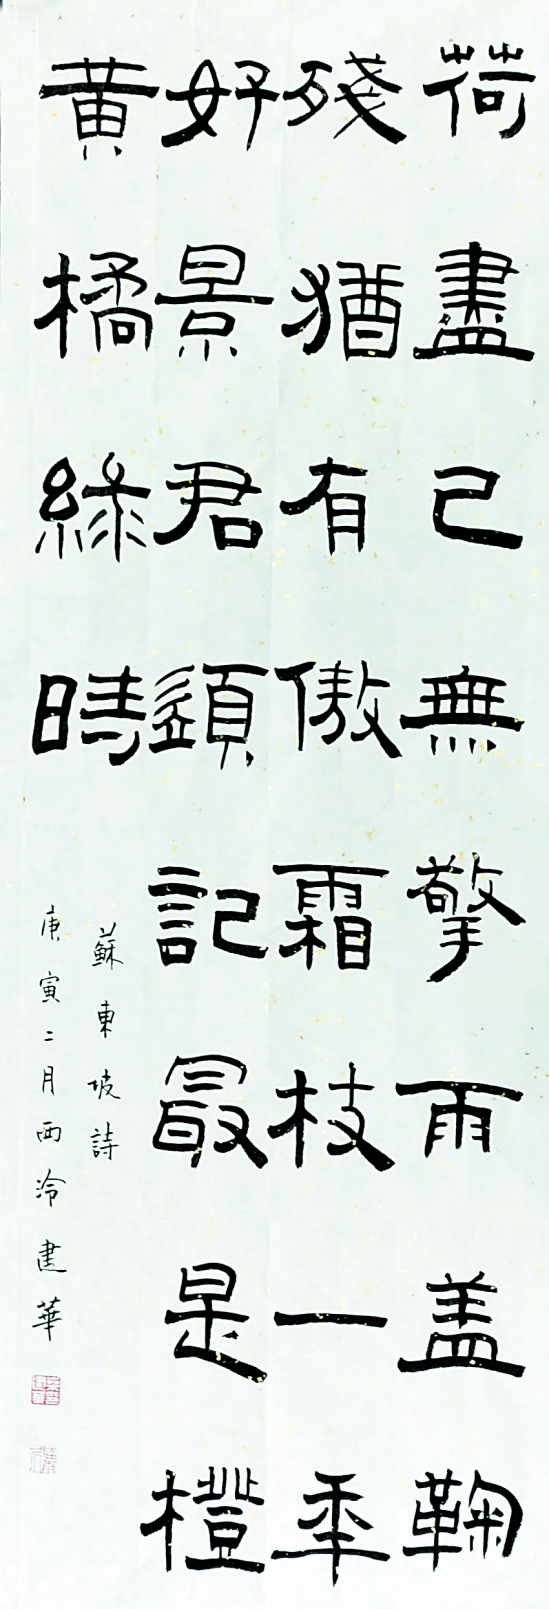 荷盡已無擎雨盖鞠
殘猶有傲霜枝一秊
好景君須記最是橙
黄橘綠時
蘇東坡詩
庚寅二月西泠建華